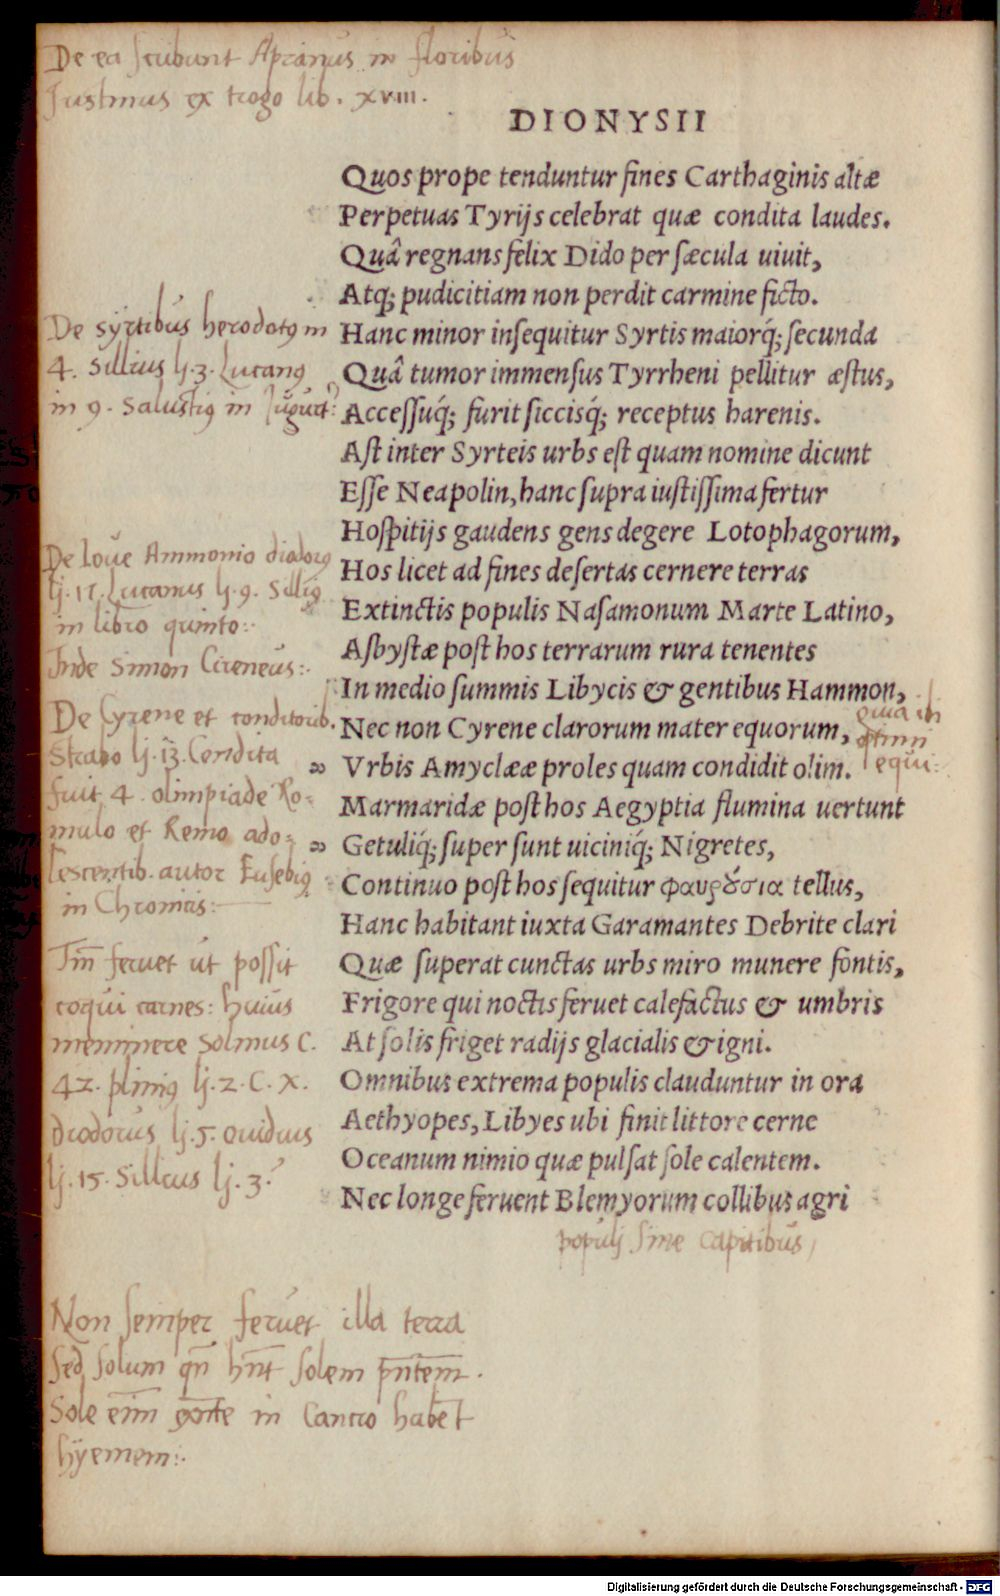 De ea scribunt Apianus in floribus
Iustinus ex trogo lib. xviii.
DIONYSII
Quos prope tenduntur fines Carthaginis altæ
Perpetuas Tyrijs celebrat quæ condita laudes.
Quâ regnans felix Dido per sæcula uiuit,
Atq; pudicitiam non perdit carmine ficto.
Hanc minor insequitur Syrtis maiorq́; secunda
Quâ tumor immensus Tyrrheni pellitur æstus,
Accessuq́; furit siccisq́; receptus harenis.
Ast inter Syrteis urbs est quam nomine dicunt
Esse Neapolin, hanc supra iustissima fertur
Hospitijs gaudens gens degere Lotophagorum,
Hos licet ad fines desertas cernere terras
Extinctis populis Nasamonum Marte Latino,
Asbystæ post hos terrarum rura tenentes
In medio summis Libycis & gentibus Hammon,
Nec non Cyrene clarorum mater equorum,
Vrbis Amyclææ proles quam condidit olim.
Marmaridæ post hos Aegyptia flumina uertunt
Getuliq́; super sunt uiciniq́; Nigretes,
Continuo post hos sequitur φαυρȣσια tellus,
Hanc habitant iuxta Garamantes Debrite clari
Quæ superat cunctas urbs miro munere fontis,
Frigore qui noctis feruet calefactus & umbris
At solis friget radijs glacialis & igni.
Omnibus extrema populis clauduntur in ora
Aethyopes, Libyes ubi finit littore cerne
Oceanum nimio quæ pulsat sole calentem.
Nec longe feruent Blemyorum collibus agri
populj sine capitibus
De syrtibus herodotꝰ in
4. Sillius lj.3. Lucanꝰ
in 9. Salustiꝰ in Jugurt.
De Ioue Ammonio diodorꝰ
lj.17. Lucanus lj.9. Silliꝰ
in libro quinto:.
Inde Simon Cireneus:.
De Cyrene et conditorib.
Strabo lj.13. Condita
fuit 4. olimpiade Ro-
mulo et Remo ado-
lescentib. autor Eusebiꝰ
in Chronicis:
quia in
optimi
equi:
Tm̄ feruet ut possit
coqui carnes: huius
meminere Solinus C.
42. pliniꝰ lj.2. C. X.
diodorus lj.5. ouidius
lj.15. Sillius lj.3.
Non semper feruet illa terra
sed solum qn̄ hn̄t solem pn̄tem.
Sole eīm in Cancro habet
hyemem:.
Digitalisierung gefördert durch die Deutsche Forschungsgemeinschaft - DFG